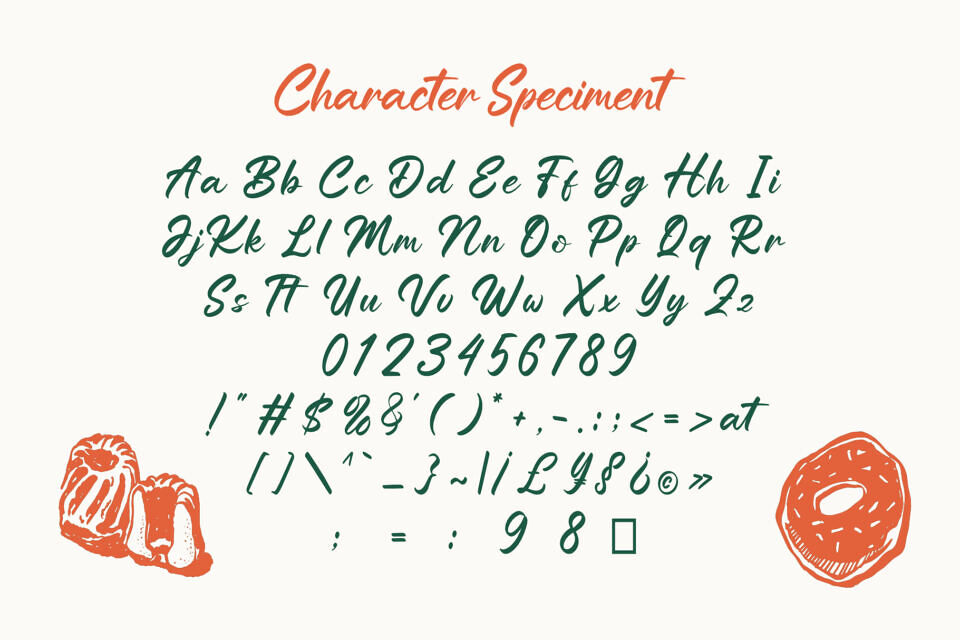 Character Speciment
Aa Bb Cc Dd Ee Ff Gg Hh Ii
JjKk Ll Mm Nn Oo Pp Qq Rr
Ss Tt Uu Vv Ww Xx Yy Zz
0123456789
!"#$%&'()*+,-.:;<=>at
[]\^`_}~|¡£¥§¿©»
; = : 9 8 □